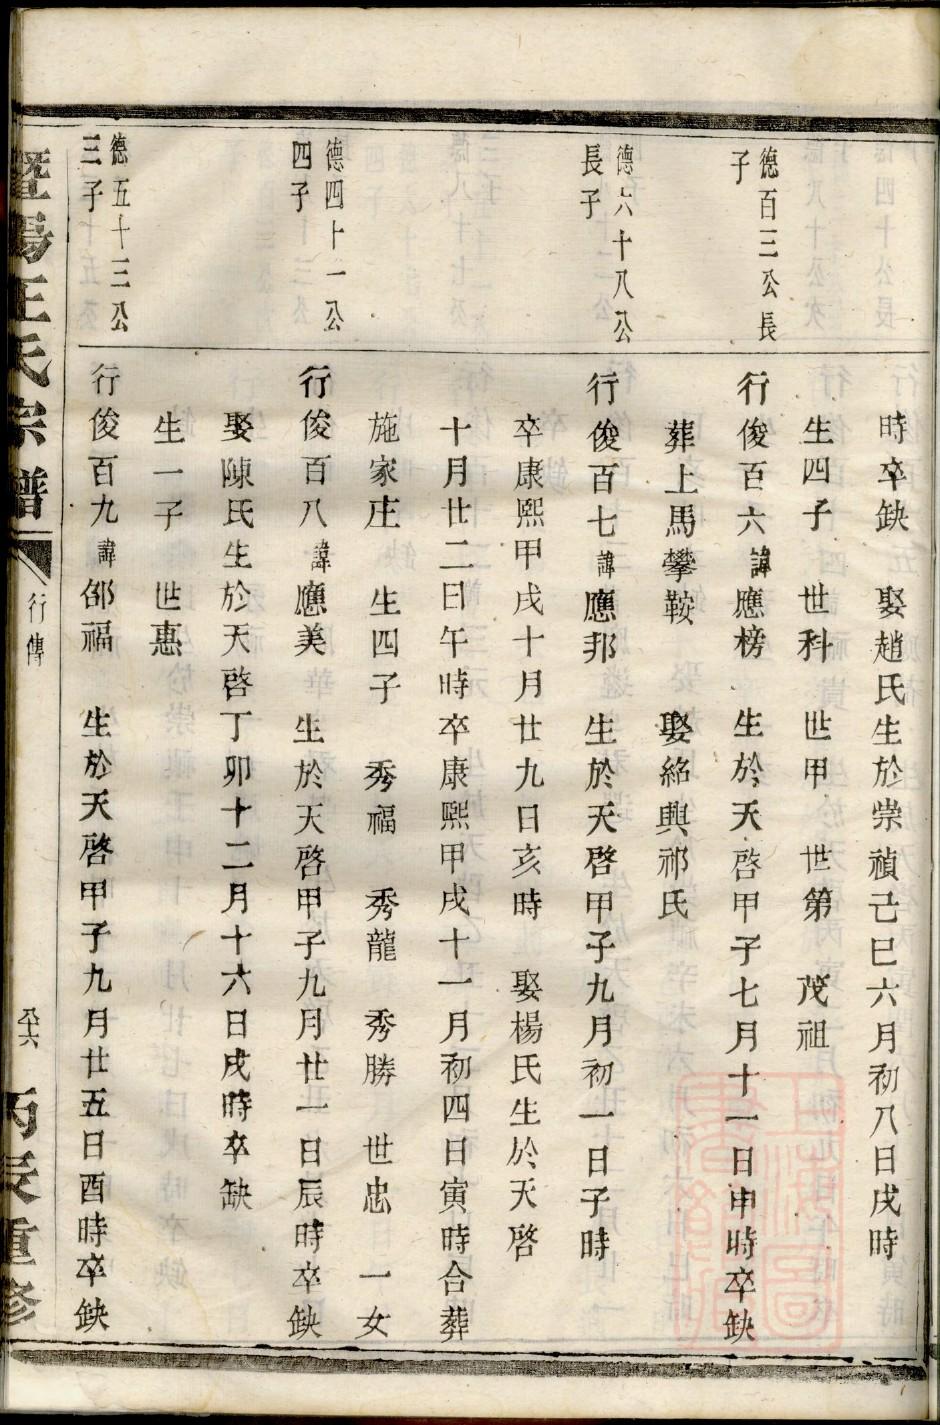 時卒缺　娶趙氏生於崇禎己巳六月初八日戌時
生四子　世科　世甲　世第　茂祖
德百三公長
子
行俊百六諱應榜　生於天啓甲子七月十一日申時卒缺
葬上馬攀鞍　娶紹興祁氏
德六十八公
長子
行俊百七諱應邦　生於天啓甲子九月初一日子時
卒康熙甲戌十月廿九日亥時　娶楊氏生於天啓
十月廿二日午時卒康熙甲戌十一月初四日寅時合葬
施家庄　生四子　秀福　秀龍　秀勝　世忠　一女
德四十一公
四子
行俊百八諱應美　生於天啓甲子九月廿一日辰時卒缺
娶陳氏生於天啓丁卯十二月十六日戌時卒缺
生一子　世惠
德五十三公
三子
行俊百九諱邵福　生於天啓甲子九月廿五日酉時卒缺
暨陽王氏宗譜
行傳
丙辰重修